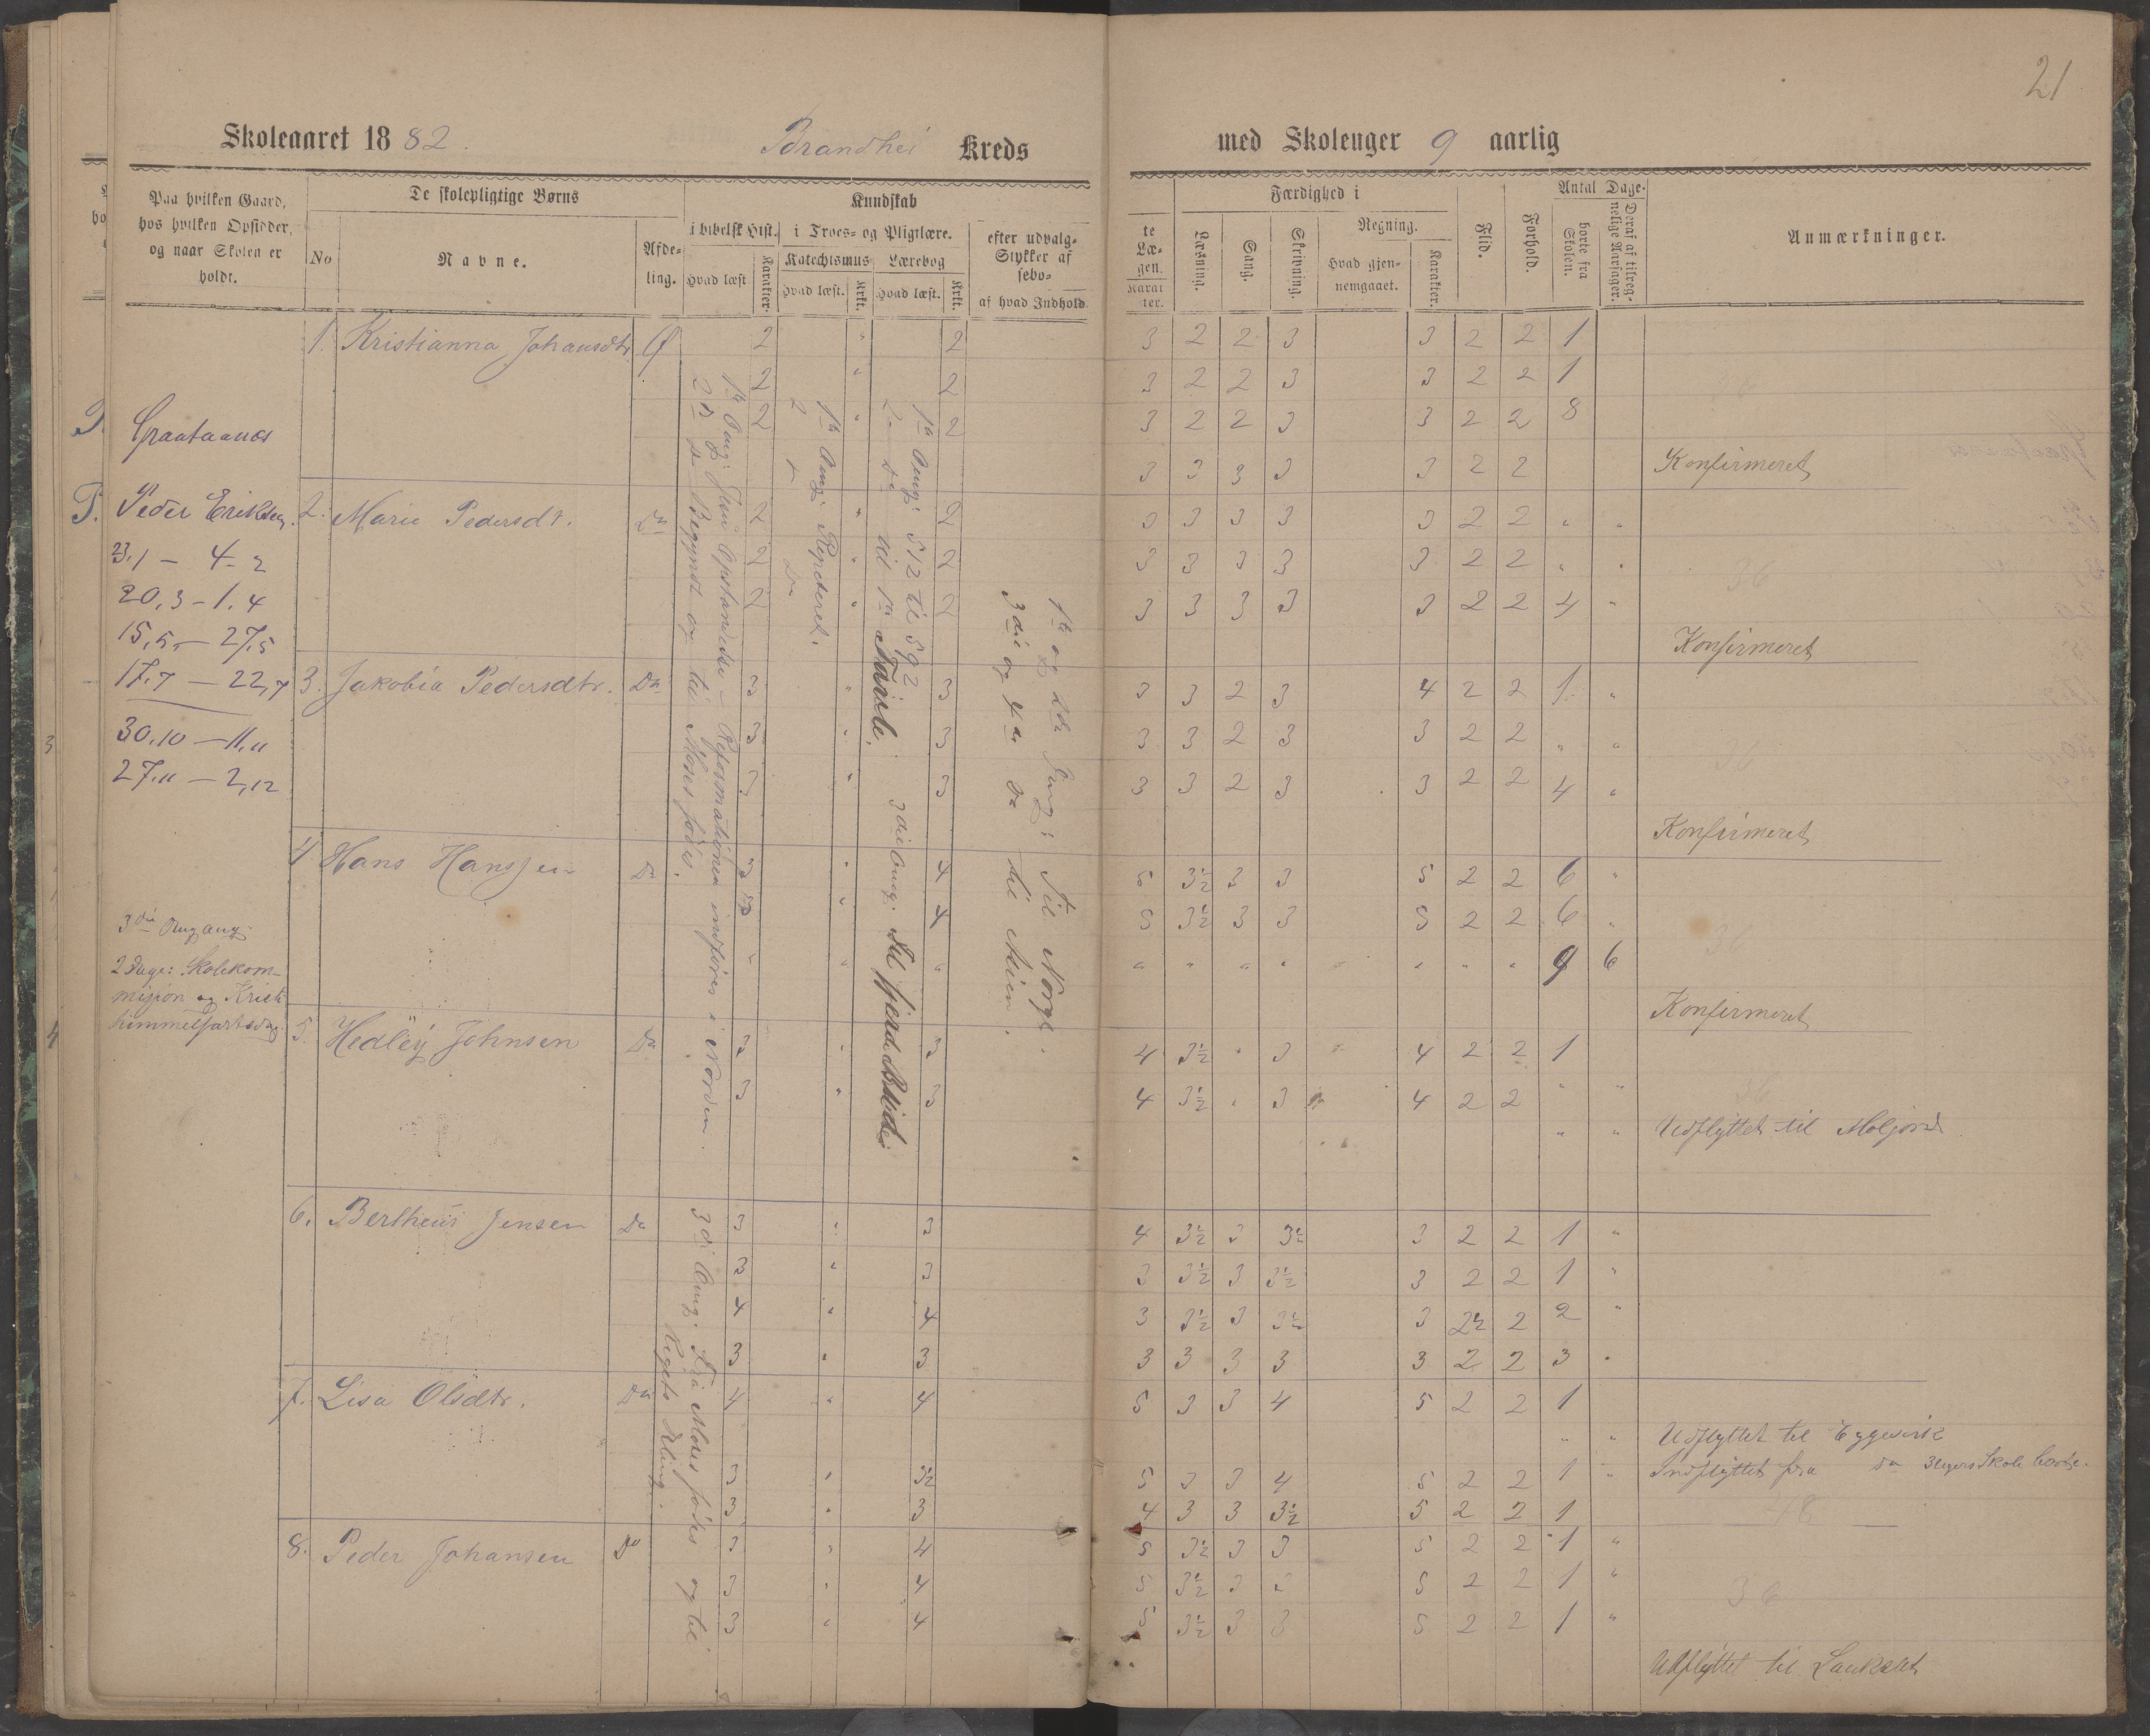 21
Skoleaaret 1882. Brandhei Kreds med Skoleuger 9 aarlig
Paa hvilken Gaard, hos hvilken Opsidder, og naar Skolen er holdt.
De skolepligtige Børns
No
Navne.
Afdeling.
Kundskab
i bibelsk Hist.
Hvad læst
Karakter.
i Troes- og Pligtlære.
Katechismus
Hvad læst.
Krkt.
Lærebog
Hvad læst.
Krkt.
efter udvalgte Stykker af Læsebogen.
af hvad Indhold
Karakter.
Færdighed i
Læsning.
Sang.
Skrivning.
Regning.
Hvad gjennemgaaet.
Karakter.
Flid.
Forhold.
Antal Dage.
borte fra Skolen.
Deraf af tilregnelige Aarsager.
Anmærkninger.
1. Kristianna Johansdtr. 2 " 2 3 2 2 3 3 2 2 1
2 " 2 3 2 2 3 3 2 2 1
2 " 2 3 2 2 3 3 2 2 8
3 3 3 3 3 2 2 Konfirmeret
Peder Eriksen.
23,1 — 4-2
20,3 — 1,4
15,5 — 27,5
17,7 — 22,7
30,10 — 11,11
27,11 — 2,12
2. Marie Pedersdt. Do 2 " 2 3 3 3 3 3 2 2 " "
2 " 2 3 3 3 3 3 2 2 " "
2 " 2 3 3 3 3 3 2 2 4 "
Konfirmeret
3. Jakobia Pedersdtr. Do 3 " 3 3 3 2 3 4 2 2 1 "
3 " 3 3 3 2 3 3 2 2 " "
3 " 3 3 3 2 3 3 2 2 4 "
Konfirmeret
4 Hans Hanssen Do 3 " 4 5 3½ 3 3 5 2 2 6 "
" 4 5 3½ 3 3 5 2 2 6 "
" " " " " " " " " " 9 6
Konfirmeret
3die Omgang
2 Dage: Skolekommission og Kristi himmelfartsdag.
5. Hedley Johnsen Do 3 " 3 4 3½ " 3 4 2 2 1
3 " 3 4 3½ " 3 4 2 2 " "
" " Udflyttet til Moljord
6. Bertheus Jensen Do 3 " 3 4 3½ 3 3½ 3 2 2 1 "
3 " 3 3 3½ 3 3½ 3 2 2 1 "
4 " 4 3 3½ 3 3½ 3 2½ 2 2 "
3 " 3 3 3 3 3 3 2 2 3 "
7. Lisa Olsdtr. Do 4 " 4 5 3 3 4 5 2 2 1
" " Udflyttet til Eggevik
3 " 3½ 5 3 3 4 5 2 2 1 " Indflyttet fra do 3 Ugers Skole borte.
3 " 3 4 3 3 3½ 5 2 2 1
8. Peder Johansen Do 3 " 4 5 3½ 3 3 5 2 2 1 "
3 " 4 5 3½ 3 3 5 2 2 1 "
3 " 4 5 3½ 3 3 5 2 2 1 "
Udflyttet til
1ste Omg: Jesu Opstandelse — Reformationen indføres i Norden.
2den do Begyndt og til Moses fødes.
3die Omg: Fra Moses fødes og til Rigets Deling.
1ste Omg: Repeteret.
2 do Do
1ste Omg: 512 til 592
2den do til 1ste Tavle.
3die Omg: til fjerde Bud
1ste og 2den Omg: Til Norge.
3die og 4de do til Asien.